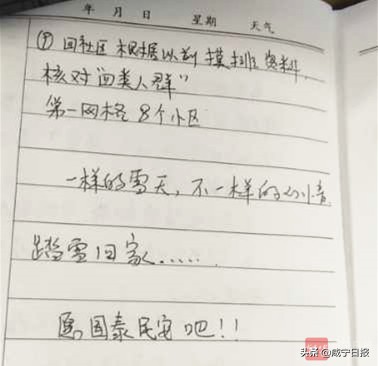 年 月 日 星期 天气
⑨ 回社区 根据以前 摸排资料,
核对"四类人群"
第一网格 8个小区
一样的雪天，不一样的心情
踏雪回家......
愿国泰民安吧!!
头条@咸宁日报